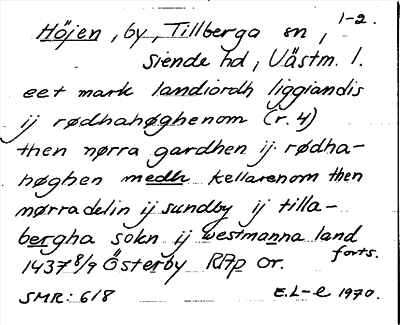 1-2.
Höjen, by, Tillberga sn,
Siende hd, Västm. l.
eet mark landiordh liggiandis
ij rødhahøghenom (r. 4)
then nørra gardhen ij rødha-
høghen medh kellarenom then
mørradelin ij sundby ij tilla-
bergha sokn ij westmanna land
forts.
1437 8/9 Österby RAp or.
SMR: 618 E.L-e 1970.